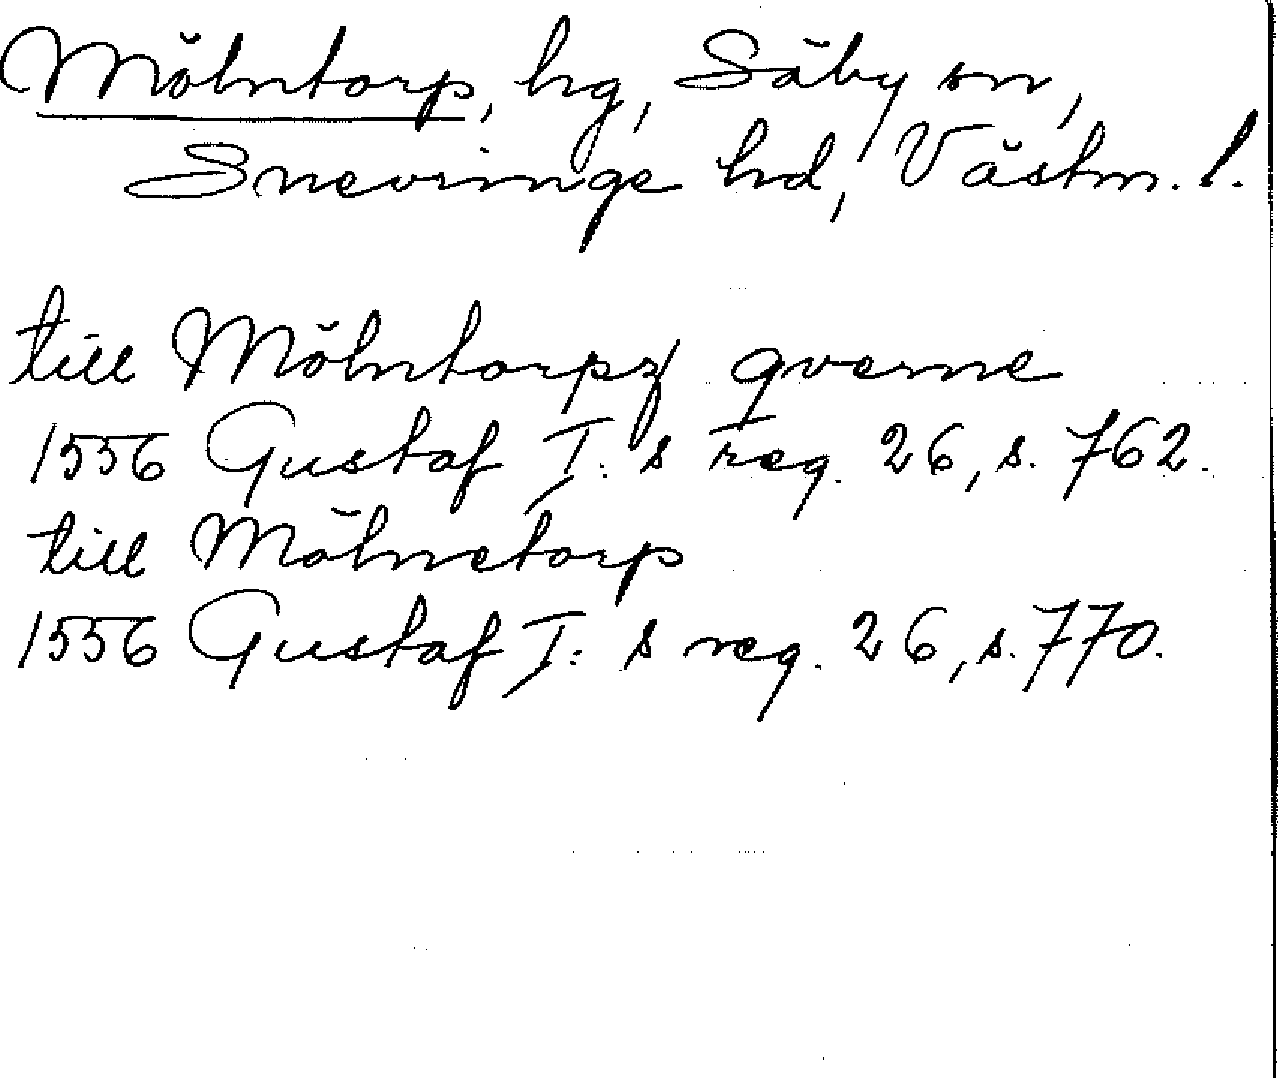 Mölntorp, hg, Säby sn,
Snevringe hd, Västm. l.
till Mölntorpz qverne
1556 Gustaf I: s reg. 26, s. 762.
till Mölnetorp
1556 Gustaf I: s reg. 26, s. 770.